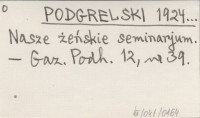 PODGRELSKI 1924...
Nasze żeńskie seminarjum.
— Gaz. Podh. 12, nr 39.